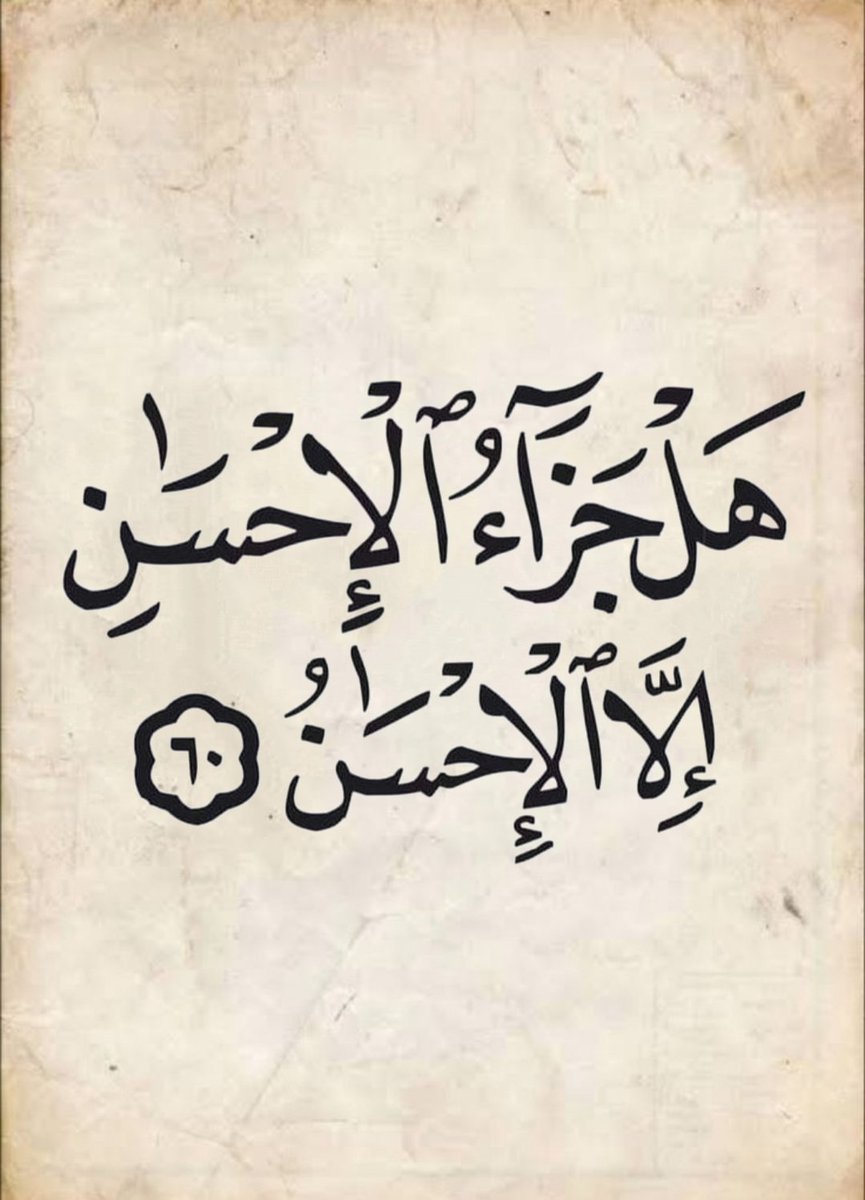 هَلْ جَزَآءُ ٱلْإِحْسَٰنِ
إِلَّا ٱلْإِحْسَٰنُ ٦٠